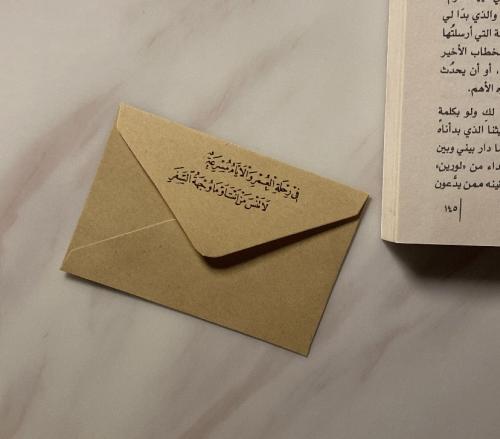 في رحلة العمر والأيام مسرعة
لا تنس من أنت أو ما وجهة السفر
والذي بدا لي
ة التي أرسلتُها
خطاب الأخير
، أو أن يحدُث
ه الأهم.
لك ولو بكلمة
يثنا الذي بدأناه
ا دار بيني وبين
داء من «لورين»
ينه ممن يدعون
١٤٥